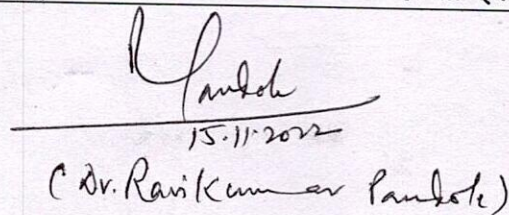 R Pandole
15.11.2022
(Dr. Ravi Kumar Pandole)